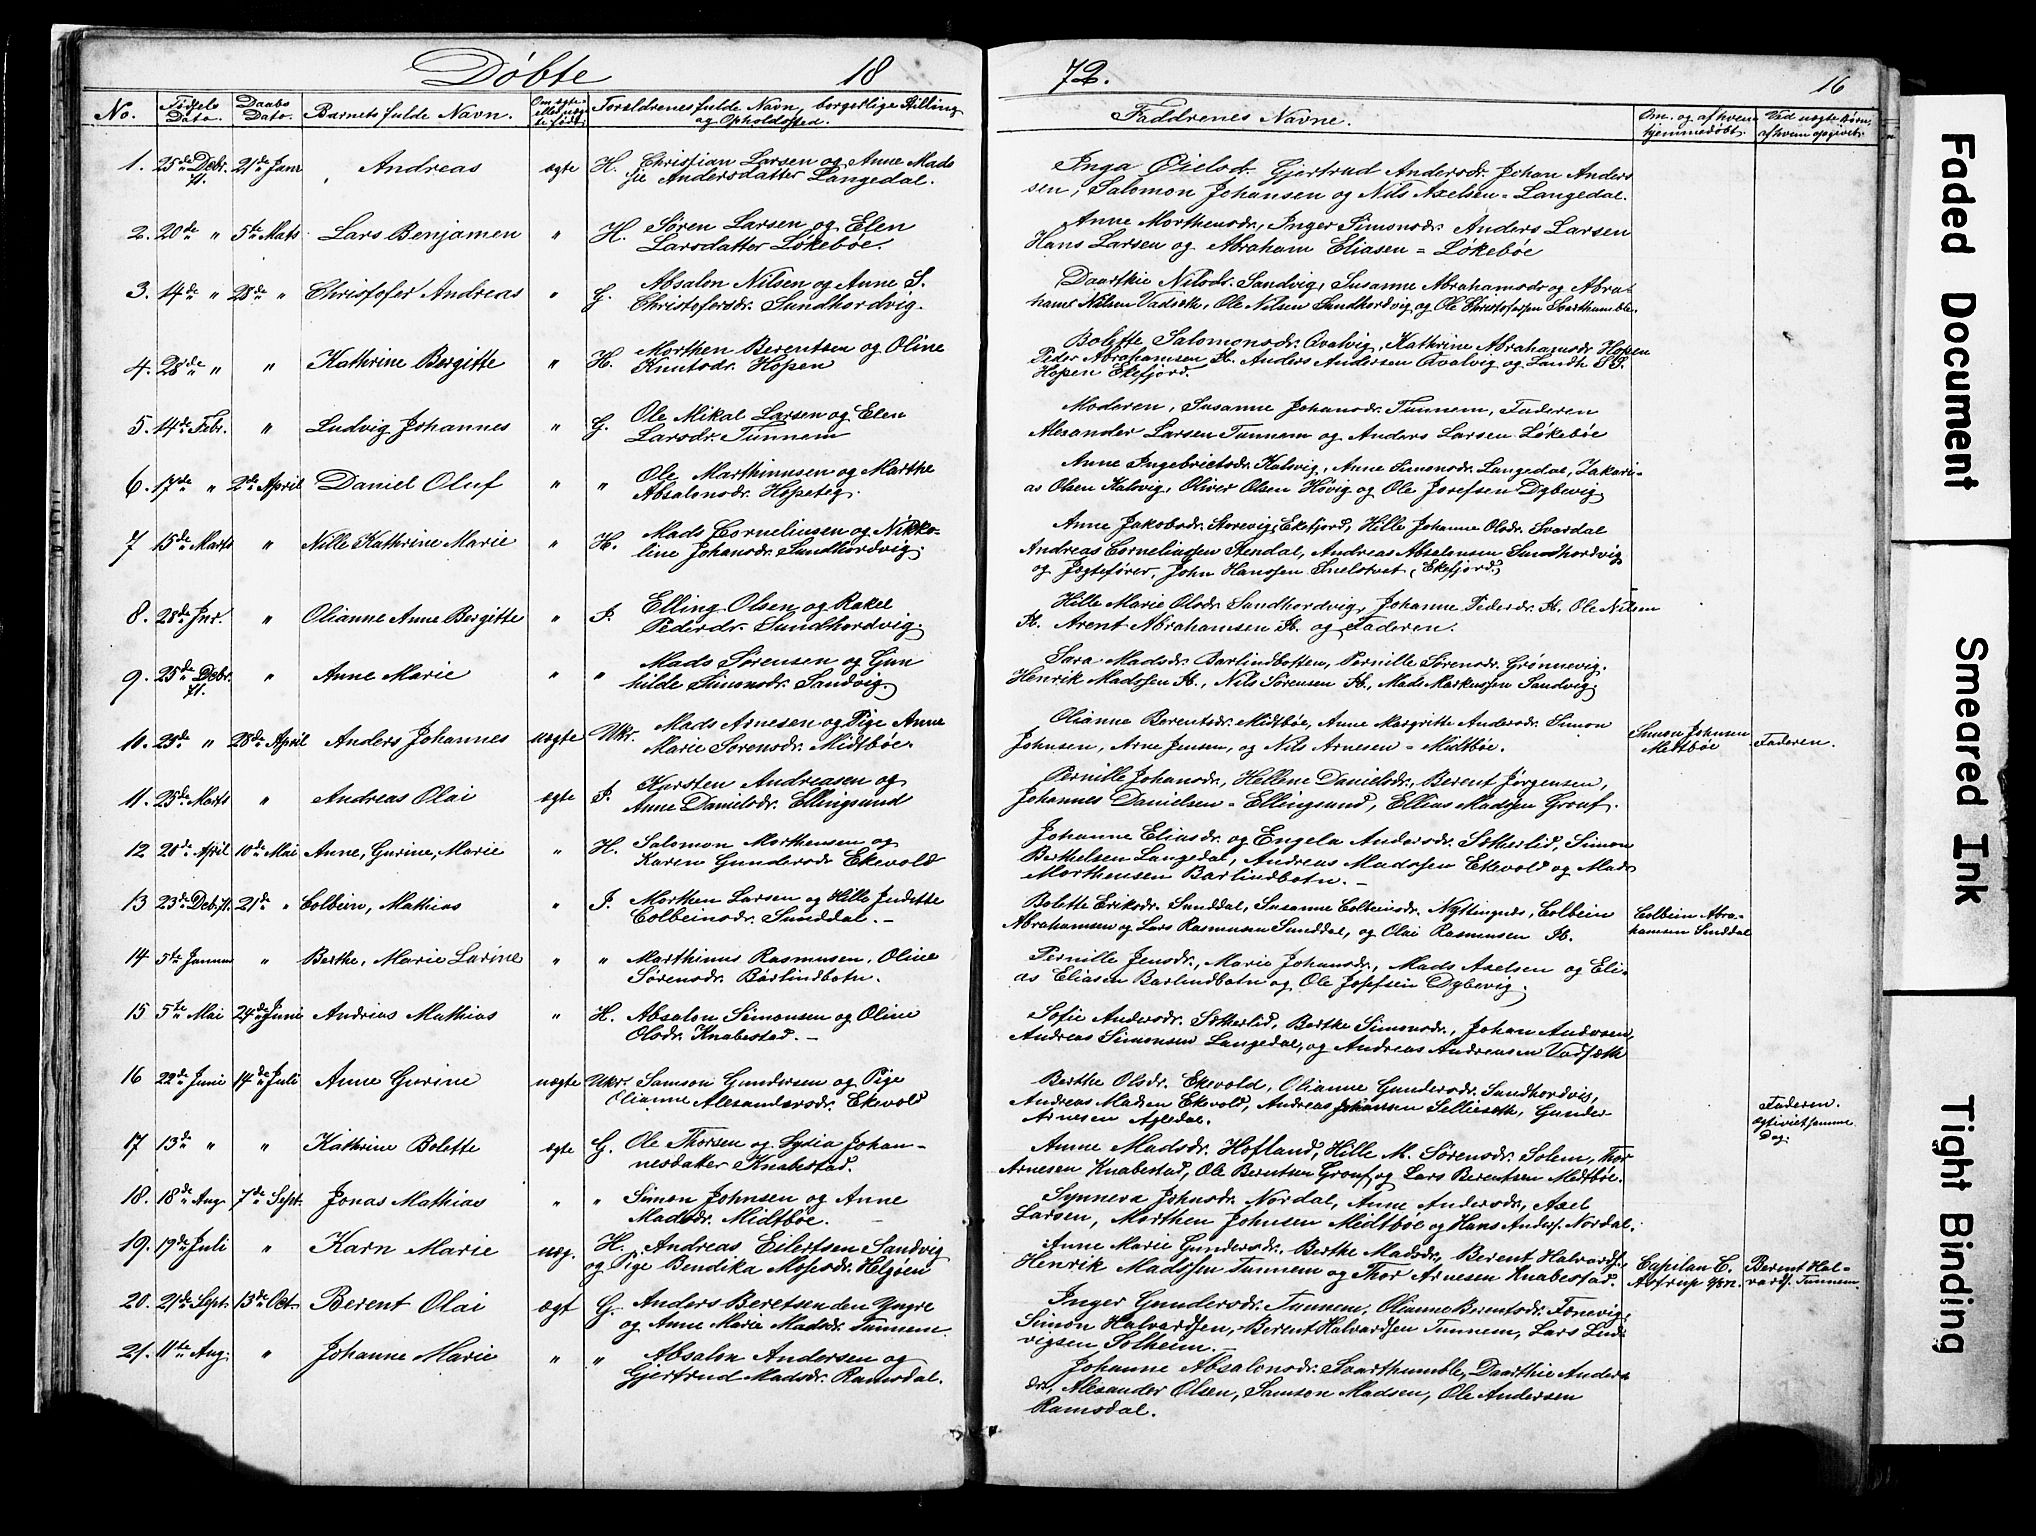 Døbte 18 72. 16
No. Fødsels Dato. Daabs Dato. Barnets fulde Navn. Om ægte eller uægte født. Forældrenes fulde Navn, borgerlige Stilling og Opholdssted. Faddrenes Navne. Om og af hvem hjemmedøbt. Ved uægte Børn, af hvem opgivet.
1. 25de Debr. 71. 21de Janr Andreas ægte H. Christian Larsen og Anne Mads
sie Andersdatter Langedal.
Inga Gjertrud Andersdr. Johan Anders
sen, Salomon Johansen og Nils Axelsen = Langedal.
2. 20de " 5te Mats Lars Benjamen " H. Søren Larsen og Elen
Larsdatter Løkebøe.
Anne Morthensdr., Inger Simonsdr. Anders Larsen
Hans Larsen og Abraham Eliasen = Løkebøe
3. 14de " 28de " Christofer Andreas " G. Absalon Nilsen og Anne S.
Christofersdr. Sundhordvig.
Daarthie Nilsdr. Sandvig, Susanne Abrahamsdr og Abra-
hams Nilsen Vadseth, Ole Nilsen Sundhordvig og Ole Christofersen Svarthumble.
4. 28de " " Kathrine Bergitte " H. Morthen Berentsen og Oline
Knutsdr. Hopen
Bolette Salomonsdr. Qvalvig, Kathrine Abrahamsdr Hopen
Peder Abrahamsen St. Anders Andersen Qvalvig og Landh S.S.
Hopen Ekefjord.
5. 14de Febr. " Ludvig Johannes " G. Ole Mikal Larsen og Elen
Larsdr. Tunnem
Moderen, Susanne Johansdr. Tunnem, Faderen
Alexander Larsen Tunnem og Anders Larsen Løkebøe
6. 17de " 2de April Daniel Oluf " " Ole Marthinusen og Marthe
Absalonsdr. Hopeteg.
Anne Ingebrictsdr. Kalsvig, Anne Simonsdr. Langedal, Zakari-
as Olsen Kalsvig, Oliver Olsen Høvig og Ole Josefsen Dybevig
7 15de Marts " Nille Kathrine Marie " H. Mads Corneliusen og Nikko-
line Johansdr. Sundhordvig.
Anne Jakobsdr. Storevig, Ekefjord, Hille Johanne Olsdr. Svardal
Andreas Corneliussen Stendal, Andreas Absalonsen Sundhordvig
og Jægtefører, John Hanssen Snelstvet, Ekefjord.
8. 28de Jnr. " Olianne Anne Bergitte " I. Elling Olsen og Rakel
Pedersdr. Sundhordvig.
Hille Marie Olsdr. Sundhordvig, Johanne Pedersdr. St. Ole Nilsen
St. Arent Abrahamsen St. og Faderen.
9. 25de Debr. 71. " Anne Marie " " Mads Sørensen og Gun
hilde Simonsdr. Sandvig.
Sara Madsdr. Barlindbotten, Pernille Sørensdr. Grønnevig.
Henrik Madssen St., Nils Sørensen St., Mads Markussen Sandvig.
10. 23de " 28de April Anders Johannes uægte Ukr. Mads Arnesen og Pige Anne
Marie Sørensdr. Midtbøe.
Olianne Berentsdr. Midtbøe, Anne Margritte Andersdr. Simon
Johnsen, Arne Jensen, og Nils Arnesen = Midtbøe.
Simon Johnsen
Medtbøe Faderen.
11. 25de Marts " Andreas Olai ægte I. Karsten Andreasen og
Anne Danielsdr. Ellingsund
Pernille Johansdr., Hellene Danielsdr., Berent Jørgensen,
Johannes Danielsen = Ellingsund, Ellias Madssen Grouf.
12 20de April 10de Mai Anne, Gurine, Marie " H. Salomon Morthensen og
Karen Gundersdr Ekevold
Johanne Eliasdr. og Engela Andersdr. Sætherlid, Simon
Berthelsen Langedal, Andreas Madssen Ekevold og Mads
Morthensen Barlindbotn. -
13 23de Deb. 71. 21de " Colbein, Mathias " I. Morthen Larsen og Hille Judette
Colbeinsdr. Sunddal. -
Bolette Eriksdr. Sunddal, Susanne Colbeinsdr. Nyttingnæs, Colbein
Abrahamsen og Lars Rasmussen Sunddal, og Olai Rasmussen St.
Colbein Abra-
hamsen Sunddal
14 5te Januar " Berthe, Marie Larine " " Marthinus Rasmusen, Oline
Sørensdr. Barlindbotn.
Pernille Jensdr., Marie Johansdr., Mads Axelsen og Eli-
as Eliasen Barlindbotn og Ole Josefsen Dybevig.
15 5te Mai 24de Juni Andrias Mathias " H. Absalon Simonsen og Oline
Olsdr. Knabestad. -
Sofie Andersdr. Sætherlid, Berthe Simonsdr., Johan Andersen,
Andreas Simonsen Langedal, og Andreas Andreasen Vadsæth
16 22de Juni 14de Juli Anne Gurine uægte Ukr. Samson Gundersen og Pige
Olianne Alexandersdr. Ekevold
Berthe Olsdr. Ekevold, Olianne Gundersdr. Sundhordvig,
Andreas Madsen Ekevold, Andreas Johansen Sellieseth, Gunder
Arnesen Afledal.
Faderen.
Dag.
17 13de " " Kathrine Bolette ægte G. Ole Thorsen og Lydia Johan-
nesdatter Knabestad.
Anne Madsdr. Hofland, Hille M. Sørensdr. Solem, Thor
Arnesen Knabestad, Ole Berntsen Grouf, og Lars Berentsen Midtbøe.
18. 18de Aug 7de Sept. Jonas Mathias " " Simon Johnsen og Anne
Madsdr. Midtbøe.
Synneva Johnsdr. Nordal, Anne Andersdr., Axel
Larsen, Morthen Johnsen Midtbøe og Hans Anders. Nordal.
19. 17de Juli " Karn Marie uæg. H. Andreas Eilertsen Sandvig
og Pige Bendika Mosesdr. Helgøen
Anne Marie Gundersdr. Berthe Madsdr., Berent Halvards.
Henrik Madssen Tunnem og Thor Arnesen Knabestad.
Capilan C.
Astrup Berent Hal-
vards. Tunnem.
20. 21de Sept. 13de Oct. Berent Olai ægt G. Anders Beretsen den Yngre
og Anne Marie Madsdr. Tunnem.
Inger Gundersdr. Tunnem, Olianne Berentsdr. Fonevig,
Simon Halvardsen, Berent Halvardsen Tunnem, Lars Lud-
vigsen Solheim.
21. 11te Aug. " Johanne Marie " " Absalon Andersen og
Gjertrud Madsdr. Ramsdal.
Johanne Absalonsdr. Svarthumble, Daarthie Anders
dr., Alexander Olsen, Samson Madsen, Ole Andersen
Ramsdal.
Faded Document
Smeared Ink
Tight Binding